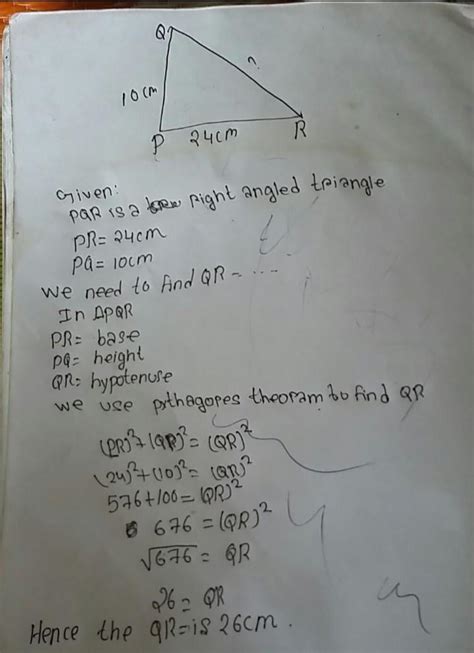 Q
10cm
?
P
24cm
R
Given:
PQR is a right angled triangle
PR= 24cm
PQ= 10cm
We need to find QR = ....
In ΔPQR
PR= base
PQ= height
QR= hypotenuse
we use pythagores theoram to find QR
(PR)²+(QP)²= (QR)²
(24)²+(10)²= (QR)²
576+100= (QR)²
676 = (QR)²
√676 = QR
26= QR
Hence the QR= is 26cm.